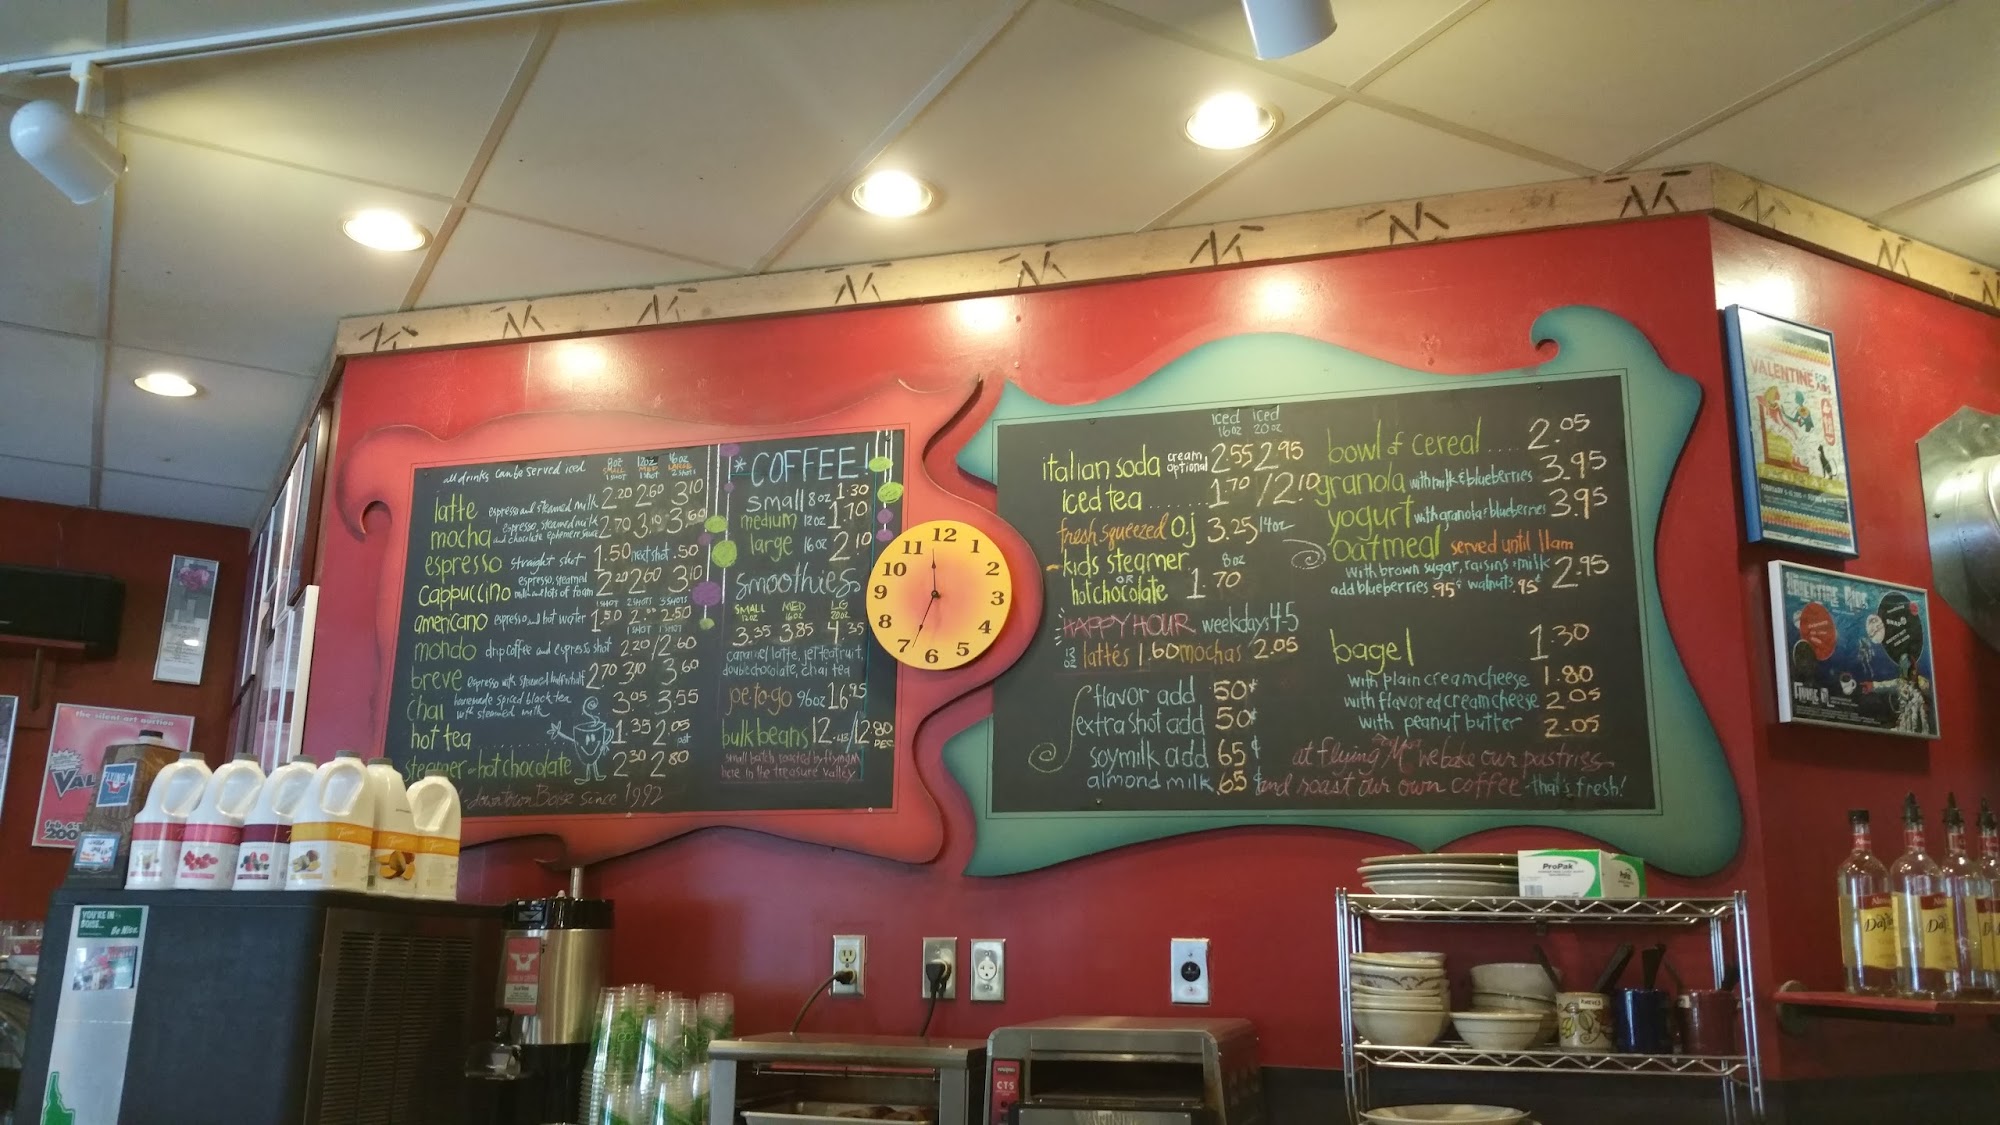 all drinks can be served iced
8oz 12oz 16oz
SMALL MED LARGE
1 SHOT 1 SHOT 2 SHOTS
latte espresso and steamed milk 2.20 2.60 3.10
mocha espresso, steamed milk and chocolate ephemere sauce 2.70 3.10 3.60
espresso straight shot 1.50 next shot .50
cappuccino espresso, steamed milk and lots of foam 2.20 2.60 3.10
1 SHOT 2 SHOTS 3 SHOTS
americano espresso and hot water 1.50 2.00 2.50
1 SHOT 1 SHOT
mondo drip coffee and espresso shot 2.20/2.60
breve espresso with steamed half n half 2.70 3.10 3.60
chai homemade spiced black tea with steamed milk 3.05 3.55
hot tea 1.35 2.05 pot
steamer or hot chocolate 2.30 2.80
downtown Boise since 1992
*COFFEE!
small 8oz 1.30
medium 12oz 1.70
large 16oz 2.10
smoothies
SMALL MED LG
12oz 16oz 20oz
3.35 3.85 4.35
caramel latte, jet tea fruit,
double chocolate, chai tea
joe-to-go 96oz 16.95
bulk beans 12.43/12.80 DEC.
small batch roasted by flying M
here in the treasure valley
12 1 2 3 4 5 6 7 8 9 10 11
iced iced
16oz 20oz
italian soda cream optional 2.55 2.95
iced tea 1.70/2.10
fresh squeezed o.j 3.25/14oz
kids steamer 8oz
or
hot chocolate 1.70
HAPPY HOUR weekdays 4-5
12 oz lattés 1.60 mochas 2.05
flavor add 50¢
extra shot add 50¢
soymilk add 65¢
almond milk 65¢
bowl of cereal 2.05
granola with milk & blueberries 3.95
yogurt with granola & blueberries 3.95
oatmeal served until 11am
with brown sugar, raisins & milk 2.95
add blueberries .95¢ walnuts .95¢
bagel 1.30
with plain cream cheese 1.80
with flavored cream cheese 2.05
with peanut butter 2.05
at flying "M" we bake our pastries
and roast our own coffee - that's fresh!
VALENTINE FOR AIDS
the silent art auction
YOU'RE IN BOISE...
Be Nice.
ProPak
CTS
DaVinci